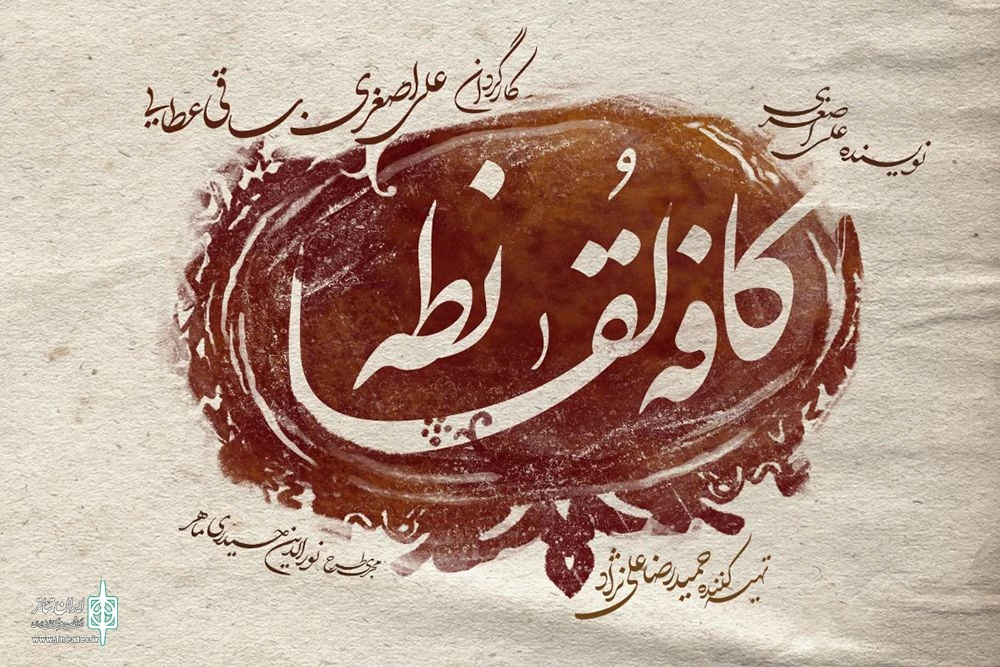 نویسنده علی اصغری
کارگردان علی اصغری . ساقی عطایی
کافه لُقانطه
تهیه کننده حمیدرضا علی نژاد
مجری طرح نورالدین حیدری ماهر
ایران تئاتر
www.theater.ir